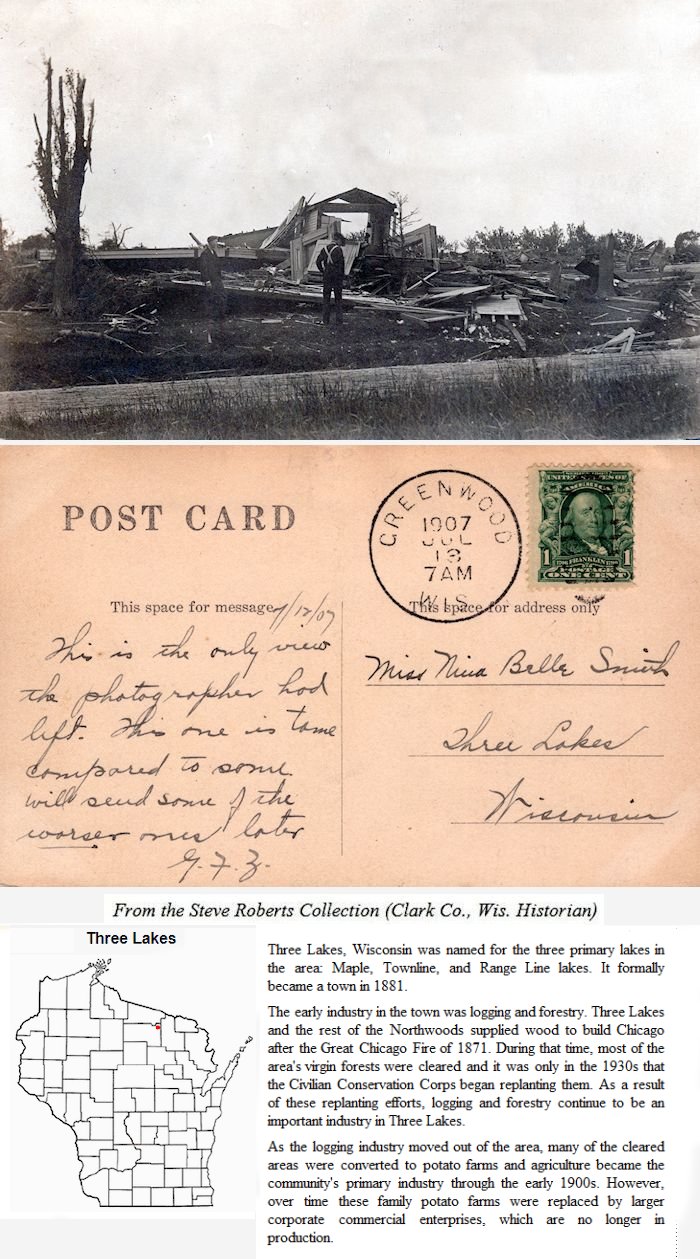 POST CARD
GREENWOOD
1907
JUL
13
7AM
WIS.
UNITED STATES OF
AMERICA
1 1706 FRANKLIN 1790 1
POSTAGE
ONE CENT
This space for message
7/12/07
This space for address only
This is the only view
the photographer had
left. This one is tame
compared to some.
will send some of the
worser ones later
G.F.Z.
Miss Nina Belle Smith
Three Lakes
Wisconsin
From the Steve Roberts Collection (Clark Co., Wis. Historian)
Three Lakes
Three Lakes, Wisconsin was named for the three primary lakes in
the area: Maple, Townline, and Range Line lakes. It formally
became a town in 1881.
The early industry in the town was logging and forestry. Three Lakes
and the rest of the Northwoods supplied wood to build Chicago
after the Great Chicago Fire of 1871. During that time, most of the
area's virgin forests were cleared and it was only in the 1930s that
the Civilian Conservation Corps began replanting them. As a result
of these replanting efforts, logging and forestry continue to be an
important industry in Three Lakes.
As the logging industry moved out of the area, many of the cleared
areas were converted to potato farms and agriculture became the
community's primary industry through the early 1900s. However,
over time these family potato farms were replaced by larger
corporate commercial enterprises, which are no longer in
production.